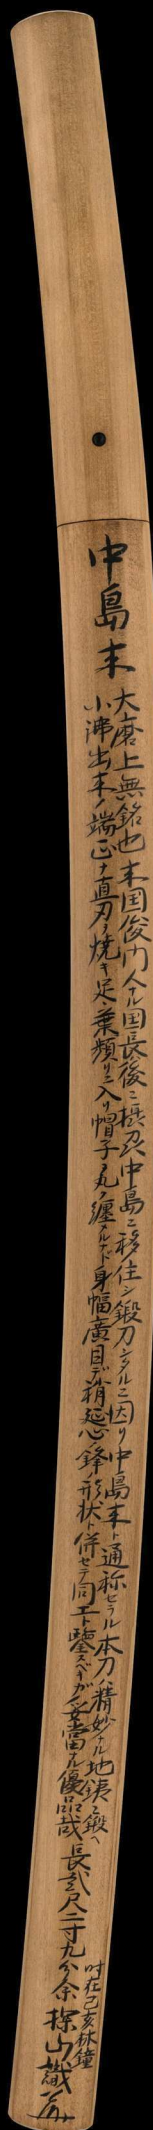 中島来
大磨上無銘也来国俊門人ナル国長後ニ摂刕中島ニ移住シ鍛刀シタルニ因リ中島来ト通称セラル本刀ノ精妙ナル地鉄ヲ鍛ヘ
小沸出来ノ端正ナ直刃ヲ焼キ足・葉頻リニ入リ帽子ヲ丸ク纏ムルナド身幅廣目デ稍延心ノ鋒形状ト併セテ同工ト鑒スベキガ妥當ナル優品哉
長弐尺二寸九分余
時在己亥林鐘
探山識